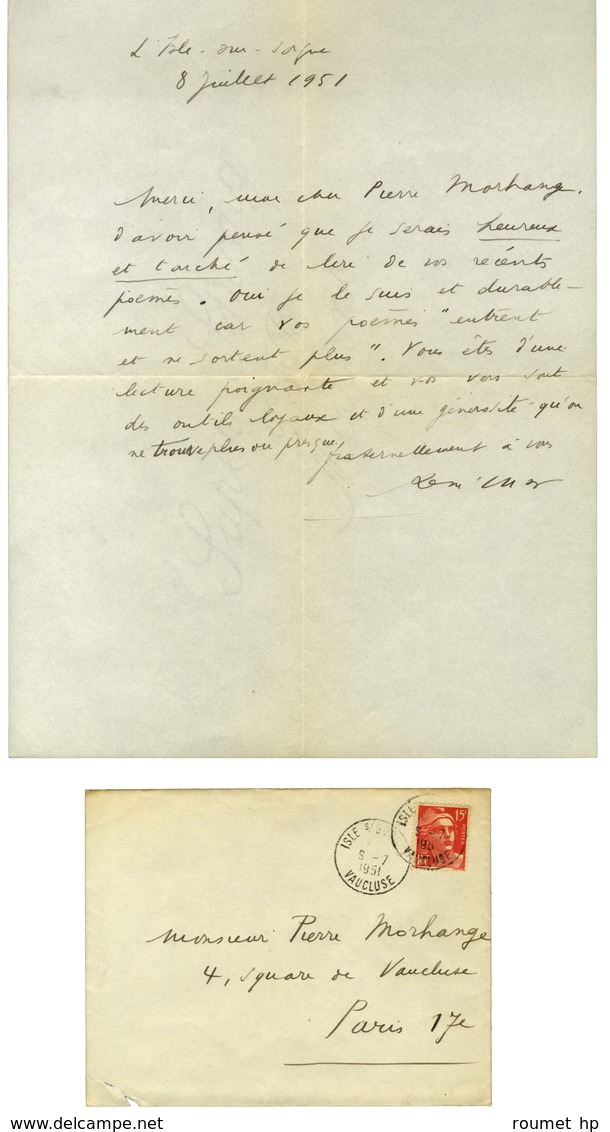 L'Isle-sur-Sorgue
8 Juillet 1951
Merci, mon cher Pierre Morhange,
d'avoir pensé que je serais heureux
et touché de lire de vos récents
poèmes. Oui je le suis et durable-
ment car vos poèmes "entrent
et ne sortent plus". Vous êtes d'une
lecture poignante et vos vers sont
des outils loyaux et d'une générosité qu'on
ne trouve plus ou presque.
fraternellement à vous
René Char
ISLE S/S
9-7
1951
VAUCLUSE
15F
ISLE
Monsieur Pierre Morhange
4, square de Vaucluse
Paris 17e
roumet hp
www.delcampe.net